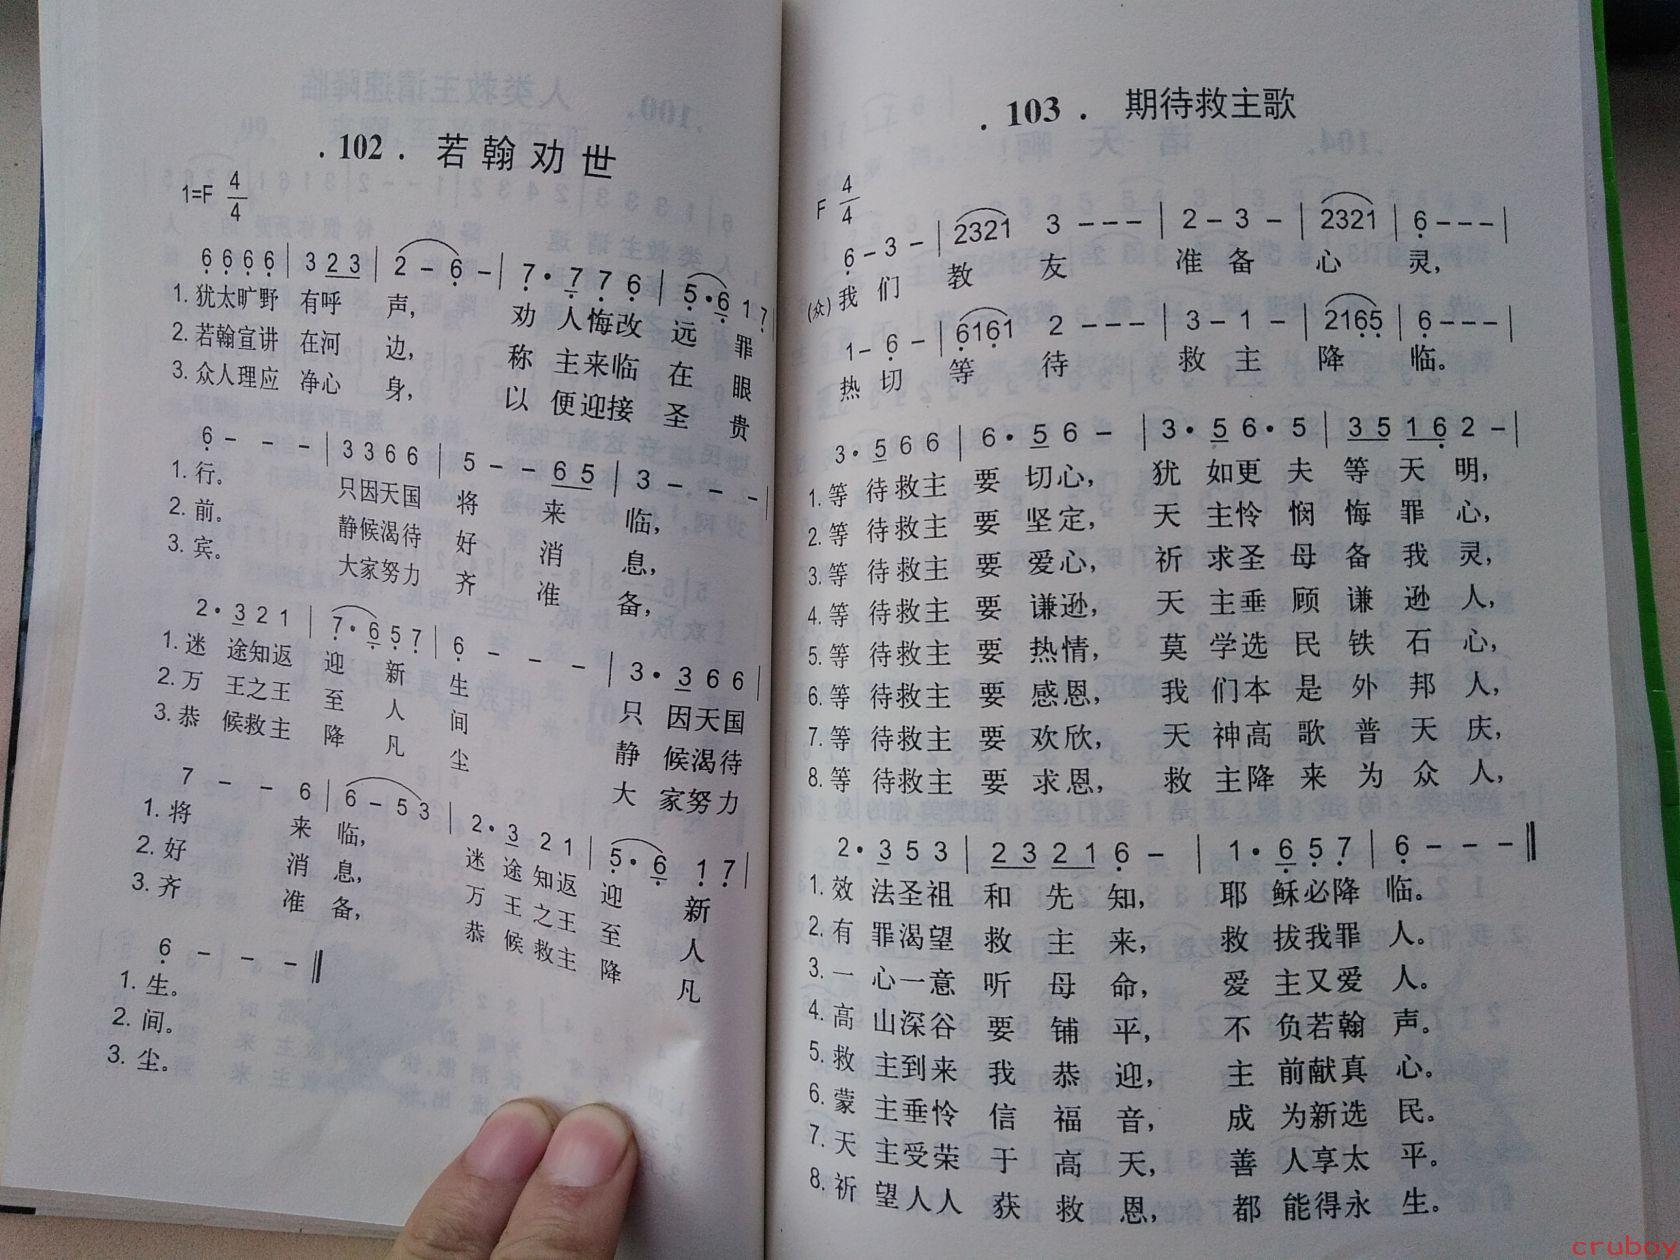 .102. 若翰劝世
1=F 4/4
6 6 6 6 | 3 2 3 | 2 - 6 - | 7 · 7 7 6 | 5 · 6 1 7 |
1. 犹太旷野 有呼 声, 劝 人悔改 远 罪
2. 若翰宣讲 在河 边, 称 主来临 在 眼
3. 众人理应 净心 身, 以 便迎接 圣 贵
6 - - - | 3 3 6 6 | 5 - - 6 5 | 3 - - - |
1. 行。 只因天国 将 来 临,
2. 前。 静候渴待 好 消 息,
3. 宾。 大家努力 齐 准 备,
2 · 3 2 1 | 7 · 6 5 7 | 6 - - - | 3 · 3 6 6 |
1. 迷 途知返 迎 新 生 只 因天国
2. 万 王之王 至 人 间 静 候渴待
3. 恭 候救主 降 凡 尘 大 家努力
7 - - 6 | 6 - 5 3 | 2 · 3 2 1 | 5 · 6 1 7 |
1. 将 来 临, 迷 途 知返 迎 新
2. 好 消 息, 万 王 之王 至 人
3. 齐 准 备, 恭 候 救主 降 凡
6 - - - ‖
1. 生。
2. 间。
3. 尘。
.103. 期待救主歌
F 4/4
6 - 3 - | 2321 3 - - - | 2 - 3 - | 2321 | 6 - - - |
(众) 我 们 教 友 准 备 心 灵,
1 - 6 - | 6161 2 - - - | 3 - 1 - | 2165 | 6 - - - |
热 切 等 待 救 主 降 临。
3 · 5 6 6 | 6 · 5 6 - | 3 · 5 6 · 5 | 3 5 1 6 2 - |
1. 等 待救主 要 切心, 犹 如更 夫 等 天 明,
2. 等 待救主 要 坚定, 天 主怜 悯 悔 罪 心,
3. 等 待救主 要 爱心, 祈 求圣 母 备 我 灵,
4. 等 待救主 要 谦逊, 天 主垂 顾 谦 逊 人,
5. 等 待救主 要 热情, 莫 学选 民 铁 石 心,
6. 等 待救主 要 感恩, 我 们本 是 外 邦 人,
7. 等 待救主 要 欢欣, 天 神高 歌 普 天 庆,
8. 等 待救主 要 求恩, 救 主降 来 为 众 人,
2 · 3 5 3 | 2 3 2 1 6 - | 1 · 6 5 7 | 6 - - - ‖
1. 效 法圣祖 和 先 知, 耶 稣必降 临。
2. 有 罪渴望 救 主 来, 救 拔我罪 人。
3. 一 心一意 听 母 命, 爱 主又爱 人。
4. 高 山深谷 要 铺 平, 不 负若翰 声。
5. 救 主到来 我 恭 迎, 主 前献真 心。
6. 蒙 主垂怜 信 福 音, 成 为新选 民。
7. 天 主受荣 于 高 天, 善 人享太 平。
8. 祈 望人人 获 救 恩, 都 能得永 生。
cruboy